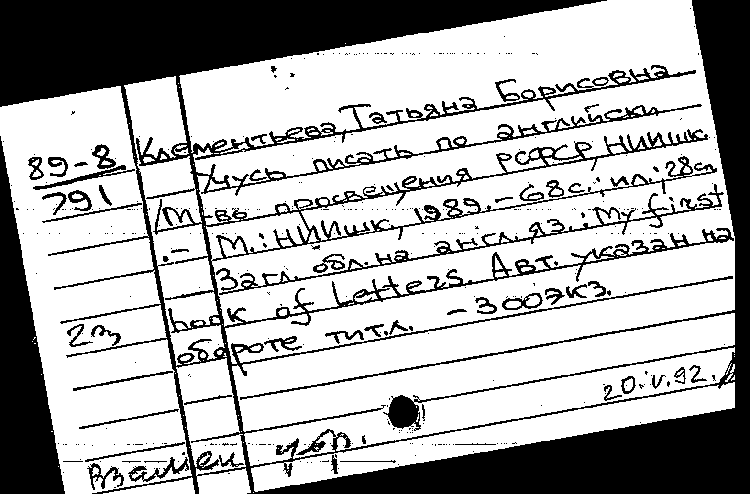 89-8
791
Клементьева, Татьяна Борисовна.
Учусь писать по английски
/М-вь просвещения РСФСР, НИИшк.
.- М.: НИИшк, 1989. - 68с.: ил.; 28см
Загл. обл. на англ. яз.: My first
book of Letters. Авт. указан на
обороте тит. л. - 300экз.
2м
20.V.92.
Взамен утр.